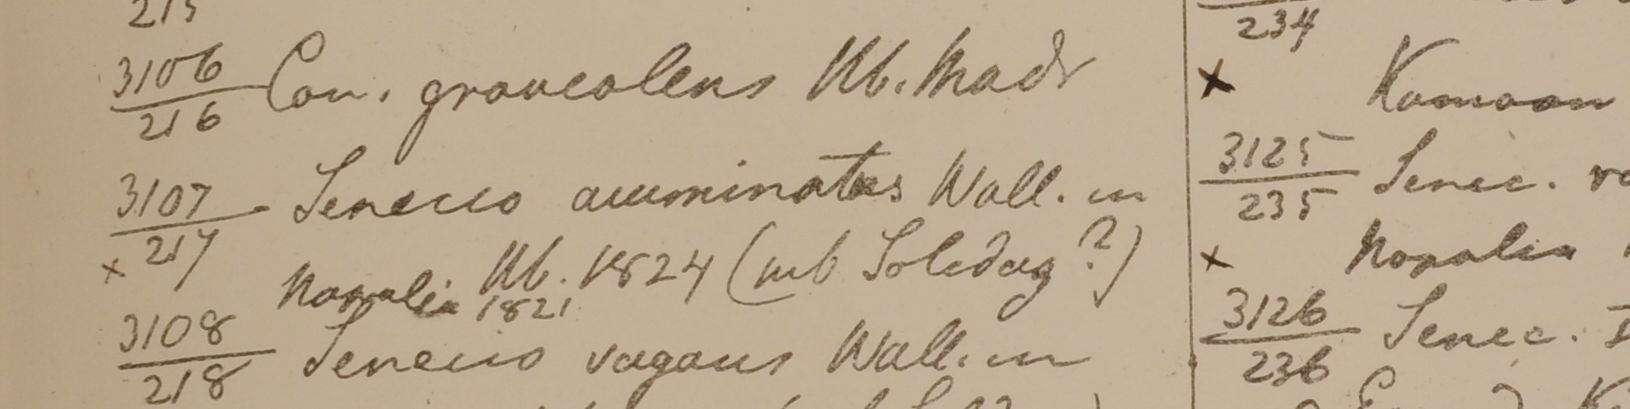 215
3106
216 Con. graveolens Hb. Madr
3107
217 Senecio acuminatus Wall. in
Hb. 1824 (sub Solidag?)
x Napalia 1821
3108
218 Senecio vagans Wall. in
234
x Kamaon
3125
235 Senec.
x Napalia
3126
236 Senec.